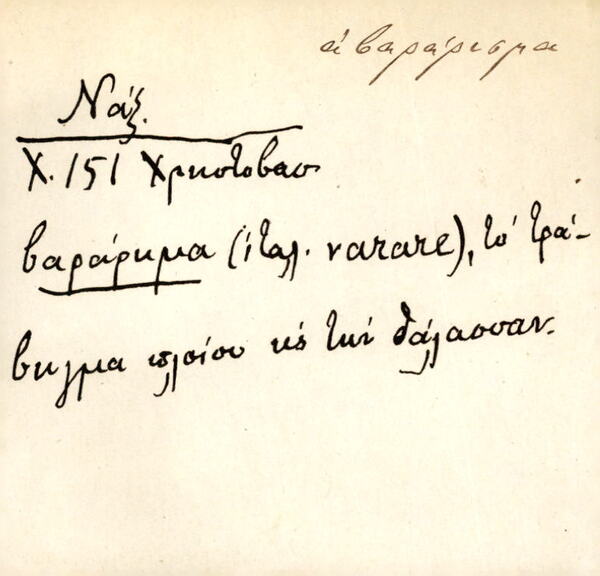 ἀβαράρισμα
Νάξ.
Χ. 151 Χρηστοβασ
βαράρημα (ἰταλ. varare), τὸ τρά-
βηγμα πλοίου εἰς τὴν θάλασσαν.